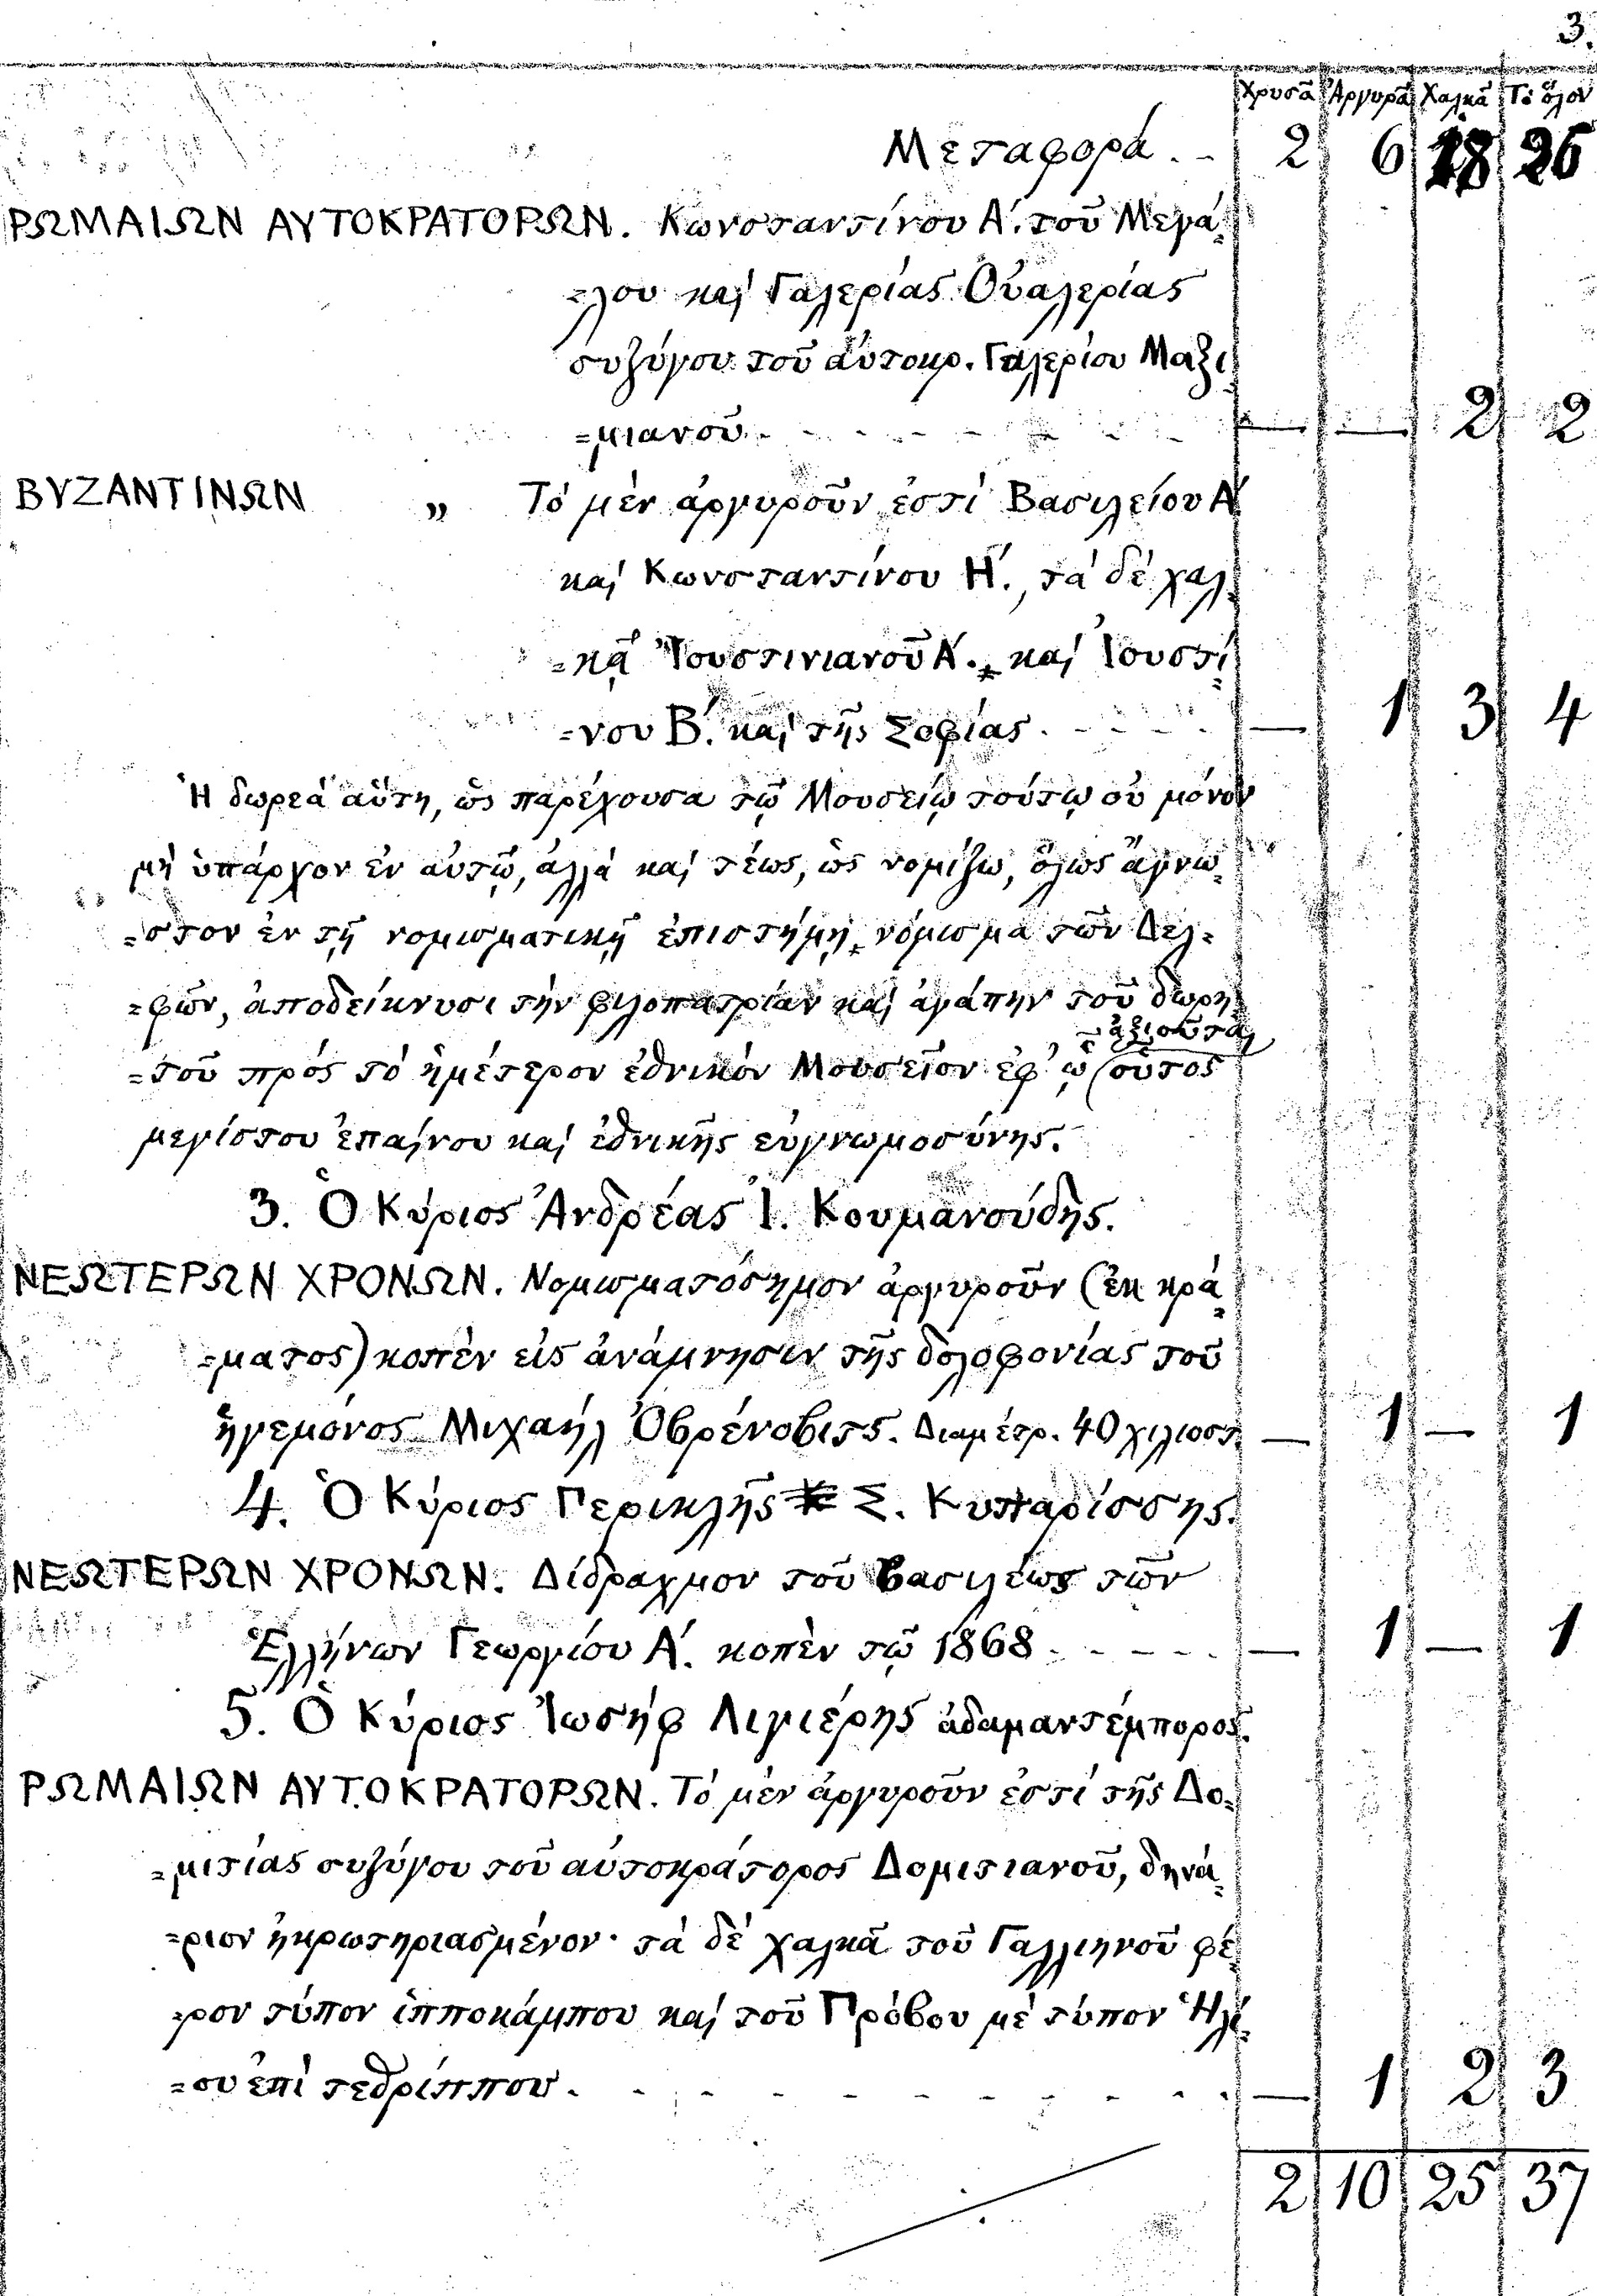 3.
Χρυσᾶ Ἀργυρᾶ Χαλκᾶ Τὸ ὅλον
Μεταφορά . - 2 6 18 26
ΡΩΜΑΙΩΝ ΑΥΤΟΚΡΑΤΟΡΩΝ. Κωνσταντίνου Α΄. τοῦ Μεγά-
-λου καὶ Γαλερίας Οὐαλερίας
συζύγου τοῦ αὐτοκρ. Γαλερίου Μαξι-
-μιανοῦ - - - - - - - — — 2 2
ΒΥΖΑΝΤΙΝΩΝ „ Τὸ μὲν ἀργυροῦν ἐστὶ Βασιλείου Α΄
καὶ Κωνσταντίνου Η΄., τὰ δὲ χαλ-
-κᾶ Ἰουστινιανοῦ Α΄. καὶ Ἰουστί-
-νου Β΄. καὶ τῆς Σοφίας . - - - - — 1 3 4
Ἡ δωρεὰ αὕτη, ὡς παρέχουσα τῷ Μουσείῳ τούτῳ οὐ μόνον
μὴ ὑπάρχον ἐν αὐτῷ, ἀλλὰ καὶ τέως, ὡς νομίζω, ὅλως ἄγνω-
-στον ἐν τῇ νομισματικῇ ἐπιστήμῃ νόμισμα τῶν Δελ-
-φῶν, ἀποδείκνυσι τὴν φιλοπατρίαν καὶ ἀγάπην τοῦ δωρη-
-ἀξιοῦται
-τοῦ πρὸς τὸ ἡμέτερον ἐθνικὸν Μουσεῖον ἐφ’ ᾧ οὗτος
μεγίστου ἐπαίνου καὶ ἐθνικῆς εὐγνωμοσύνης.
3. Ὁ Κύριος Ἀνδρέας Ἰ. Κουμανούδης.
ΝΕΩΤΕΡΩΝ ΧΡΟΝΩΝ. Νομισματόσημον ἀργυροῦν (ἐκ κρά-
-ματος) κοπὲν εἰς ἀνάμνησιν τῆς δολοφονίας τοῦ
ἡγεμόνος Μιχαὴλ Ὀβρένοβιτς. Διαμέτρ. 40 χιλιοστ. — 1 — 1
4. Ὁ Κύριος Περικλῆς Σ. Κυπαρίσσης.
ΝΕΩΤΕΡΩΝ ΧΡΟΝΩΝ. Δίδραχμον τοῦ Βασιλέως τῶν
Ἑλλήνων Γεωργίου Α΄. κοπὲν τῷ 1868 - - - - . — 1 — 1
5. Ὁ Κύριος Ἰωσὴφ Λιγιέρης ἀδαμαντέμπορος.
ΡΩΜΑΙΩΝ ΑΥΤΟΚΡΑΤΟΡΩΝ. Τὸ μὲν ἀργυροῦν ἐστὶ τῆς Δο-
-μιτίας συζύγου τοῦ αὐτοκράτορος Δομιτιανοῦ, δηνά-
-ριον ἠκρωτηριασμένον· τὰ δὲ χαλκᾶ τοῦ Γαλλιηνοῦ φέ-
-ρον τύπον ἱπποκάμπου καὶ τοῦ Πρόβου μὲ τύπον Ἡλί-
-ου ἐπὶ τεθρίππου . - - - - - - - - - — 1 2 3
2 10 25 37